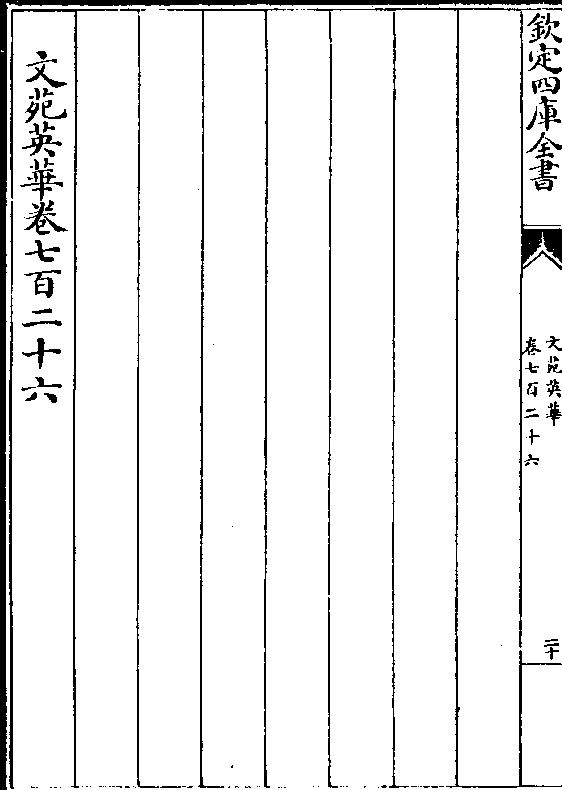 欽定四庫全書
文苑英華
卷七百二十六
二十
文苑英華卷七百二十六